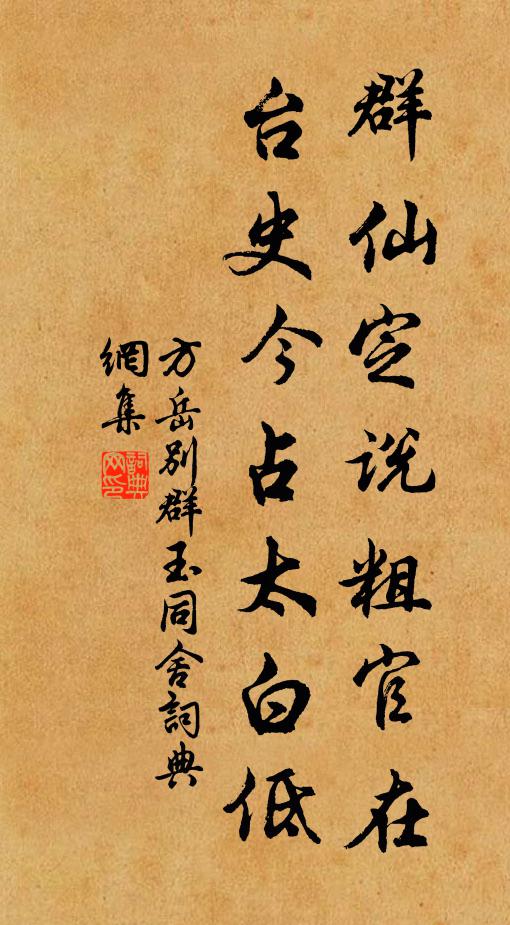 群仙定说粗官在
台史今占太白低
方岳别群玉同舍詞典
網集
詞典網印